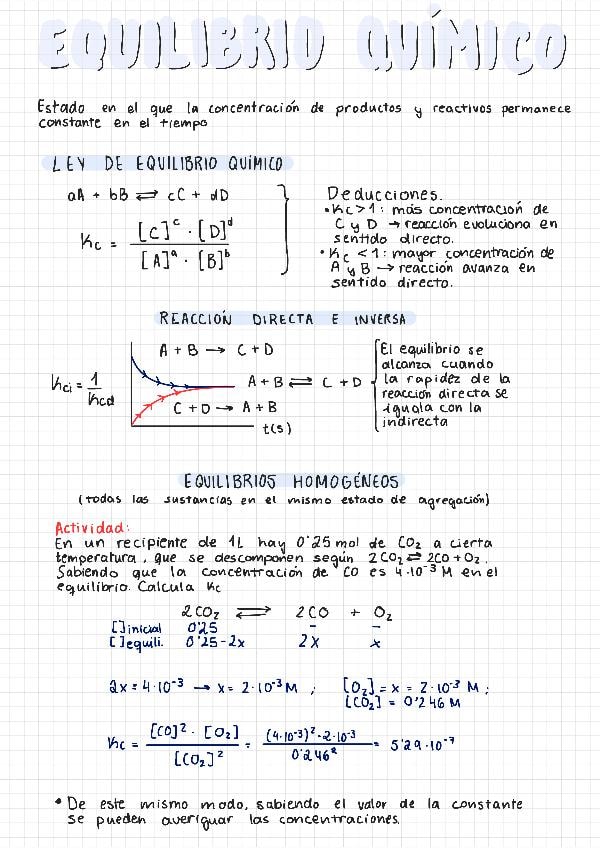 EQUILIBRIO QUÍMICO
Estado en el que la concentración de productos y reactivos permanece
constante en el tiempo
LEY DE EQUILIBRIO QUÍMICO
aA + bB ⇌ cC + dD
Kc = [C]ᶜ · [D]ᵈ / [A]ᵃ · [B]ᵇ
Deducciones.
• Kc > 1: más concentración de
C y D → reacción evoluciona en
sentido directo.
• Kc < 1: mayor concentración de
A y B → reacción avanza en
sentido directo.
REACCIÓN DIRECTA E INVERSA
Kci = 1 / Kcd
A + B → C + D
A + B ⇌ C + D
C + D → A + B
t(s)
El equilibrio se
alcanza cuando
la rapidez de la
reacción directa se
iguala con la
indirecta
EQUILIBRIOS HOMOGÉNEOS
(todas las sustancias en el mismo estado de agregación)
Actividad:
En un recipiente de 1L hay 0'25 mol de CO₂ a cierta
temperatura, que se descomponen según 2CO₂ ⇌ 2CO + O₂.
Sabiendo que la concentración de CO es 4·10⁻³ M en el
equilibrio. Calcula Kc
2CO₂ ⇌ 2CO + O₂
[]inicial 0'25 - -
[]equili. 0'25-2x 2x x
2x = 4·10⁻³ → x = 2·10⁻³ M ; [O₂] = x = 2·10⁻³ M ;
[CO₂] = 0'246 M
Kc = [CO]² · [O₂] / [CO₂]² = (4·10⁻³)² · 2·10⁻³ / 0'246² = 5'29·10⁻⁷
• De este mismo modo, sabiendo el valor de la constante
se pueden averiguar las concentraciones.